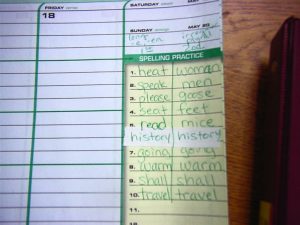 FRIDAY
18
SATURDAY MAY
SUNDAY MAY 20
SPELLING PRACTICE
1. heat woman
2. speak men
3. please goose
4. seat feet
5. read mice
history history
7. going going
8. warm warm
9. shall shall
10. travel travel
11.
12.